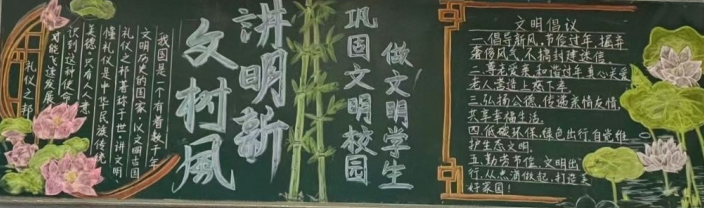 讲文明
树新风
巩固文明校园
做文明学生
我国是一个有着数千年
文明历史的国家，以文明古国
礼仪之邦著称于世。讲文明、
懂礼仪是中华民族传统
美德，只有人人意
识到这种使命
才能飞速发展
礼仪之邦
文明倡议
一.倡导新风，节俭过年，摒弃
奢侈风气，不搞封建迷信。
二.尊老爱亲，和谐过年真心关爱
老人营造上慈下孝。
三.弘扬公德，传递亲情友情
共享幸福生活。
四.低碳环保，绿色出行，自觉维
护生态文明。
五.勤劳节俭，文明出
行，从点滴做起，打造美
好家园！